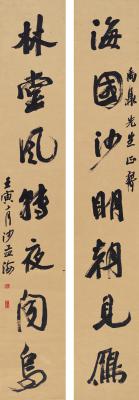 海國沙明朝見雁
先生正
林堂風轉夜聞烏
壬寅 月沙孟海